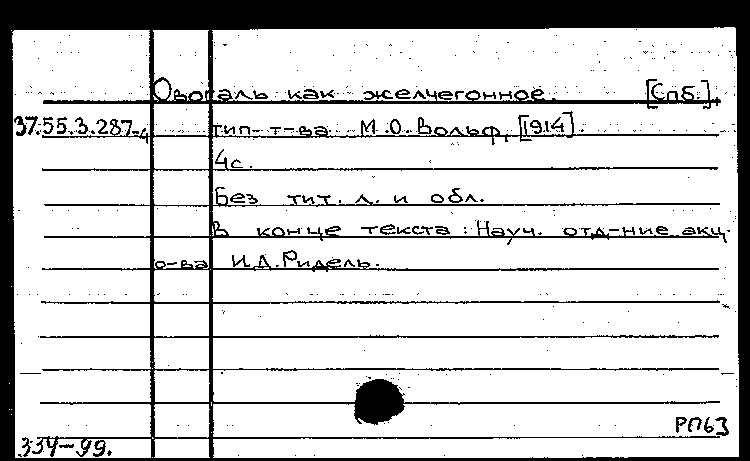 Овогаль как желчегонное. [Спб.],
37.55.3.287-4 тип-т-ва М.О.Вольф, [1914].
4с.
Без тит. л. и обл.
В конце текста: Науч. отд-ние акц.
о-ва И.Д.Ридель.
РП63
334-99.